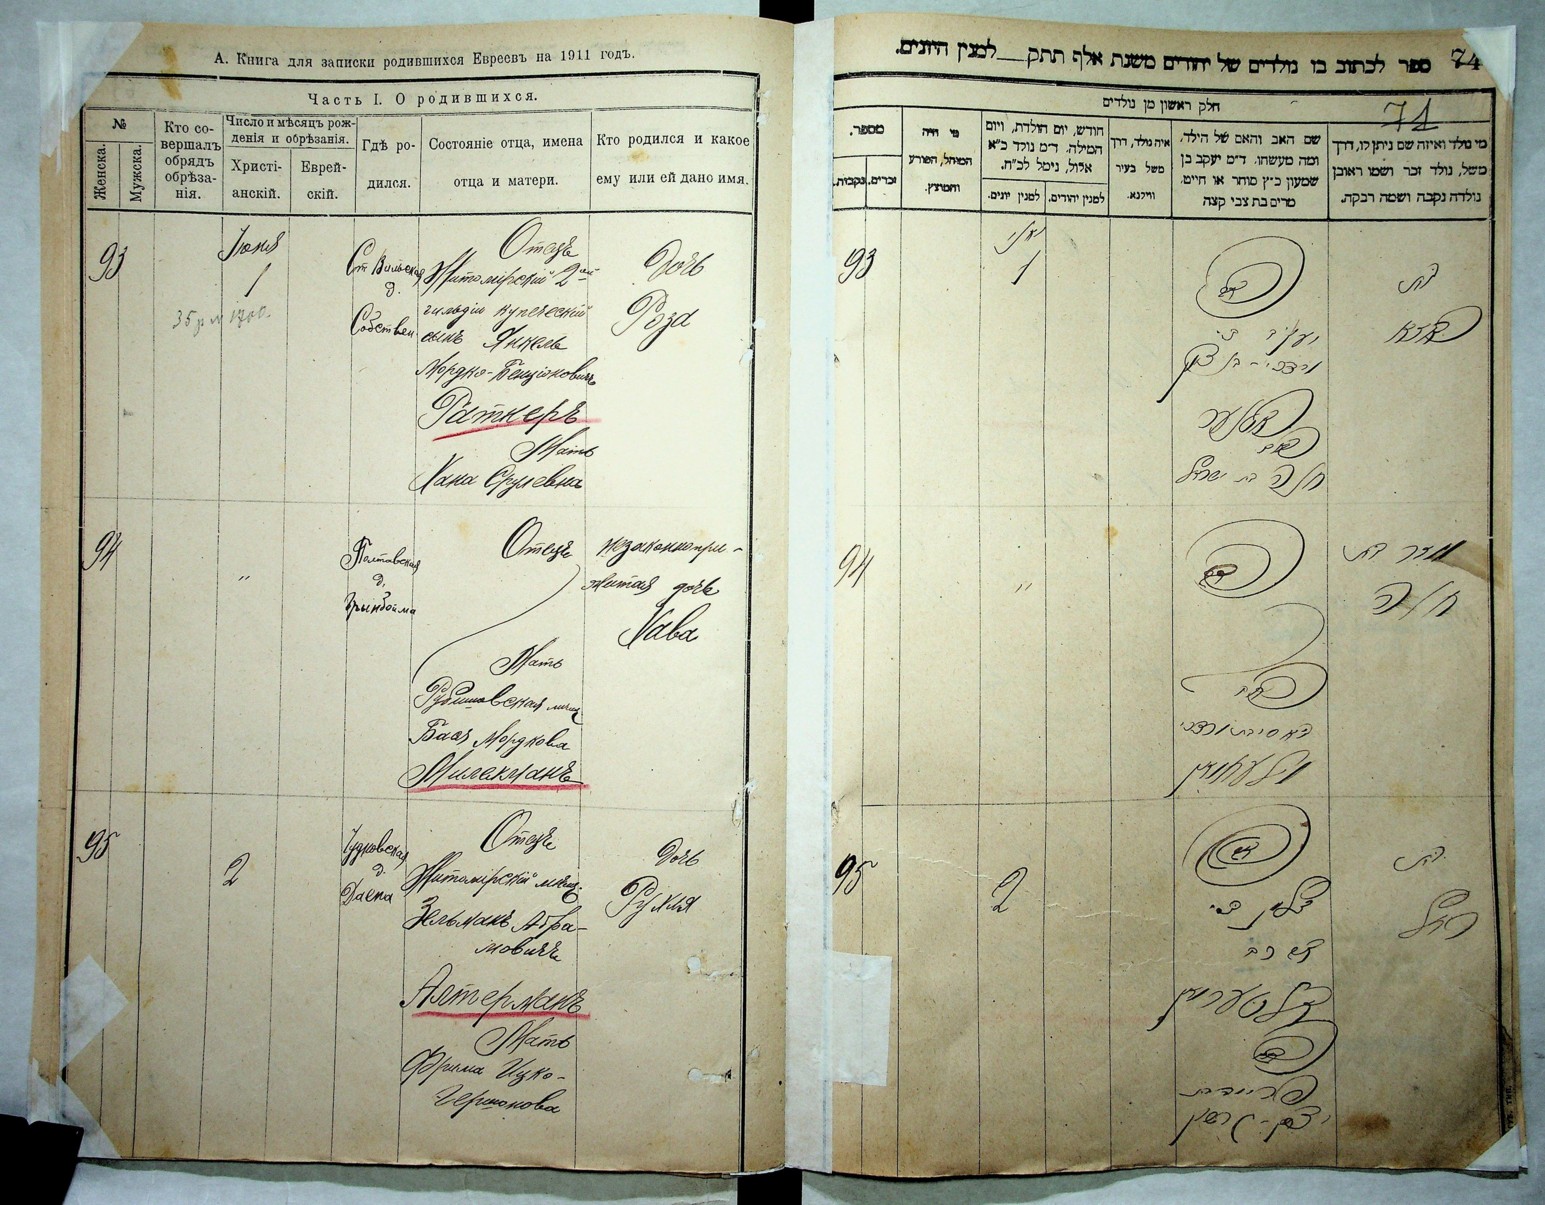 А. Книга для записки родившихся Евреевъ на 1911 годъ.
Часть I. О родившихся.
№
Женска.
Мужска.
Кто со-
вершалъ
обрядъ
обрѣза-
нія.
Число и мѣсяцъ рож-
денія и обрѣзанія.
Христі-
анскій.
Еврей-
скій.
Гдѣ ро-
дился.
Состояніе отца, имена
отца и матери.
Кто родился и какое
ему или ей дано имя.
93
Іюня
1
Собствен.
Отецъ
Житомірскій 2-ой
гильдіи купеческій
сынъ Янкель
Мордко-Бенціоновичъ
Ратнеръ
Мать
Хана Срулевна
Дочь
Роза
94
"
Полтавская
д.
Отецъ
Мать
Бася Мордкова
Милекманъ
незаконнопри-
житая дочь
Хава
95
2
Чудновская
д.
Отецъ
Житомірскій мѣщ.
Зельманъ Абра-
мовичъ
Алтерманъ
Мать
Фрима Ицко-
Гершонова
Дочь
Рухля
ספר לכתוב בו נולדים של יהודים משנת אלף תתק למנין היונים.
74
חלק ראשון מן נולדים
71
מספר.
זכרים.
נקבות.
מי היה
המוהל, הפורע
והמוצץ.
חודש, יום הולדת, ויום
המילה. ד"מ נולד כ"א
אלול, נימל לכ"ח.
למנין יונים.
למנין יהודים.
איה נולד, דרך
משל בעיר
ווילנא.
שם האב והאם של הילד,
ומה מעשהו. ד"מ יעקב בן
שמעון כ"ץ סוחר או חייט.
מרים בת צבי קצה
מי נולד ואיזה שם ניתן לו, דרך
משל, נולד זכר ושמו ראובן
נולדה נקבה ושמה רבקה.
93
יוני
1
אב
מרדכי-בן ציון
ראטנער
אם
חנה בת ישראל
בת
ראזא
94
"
אב
אם
באסי בת מרדכי
בת
חוה
95
2
אב
זלמן בי
אברהם
אלטערמאן
אם
פרימא בת
יצחק-גרשון
בת
רחל